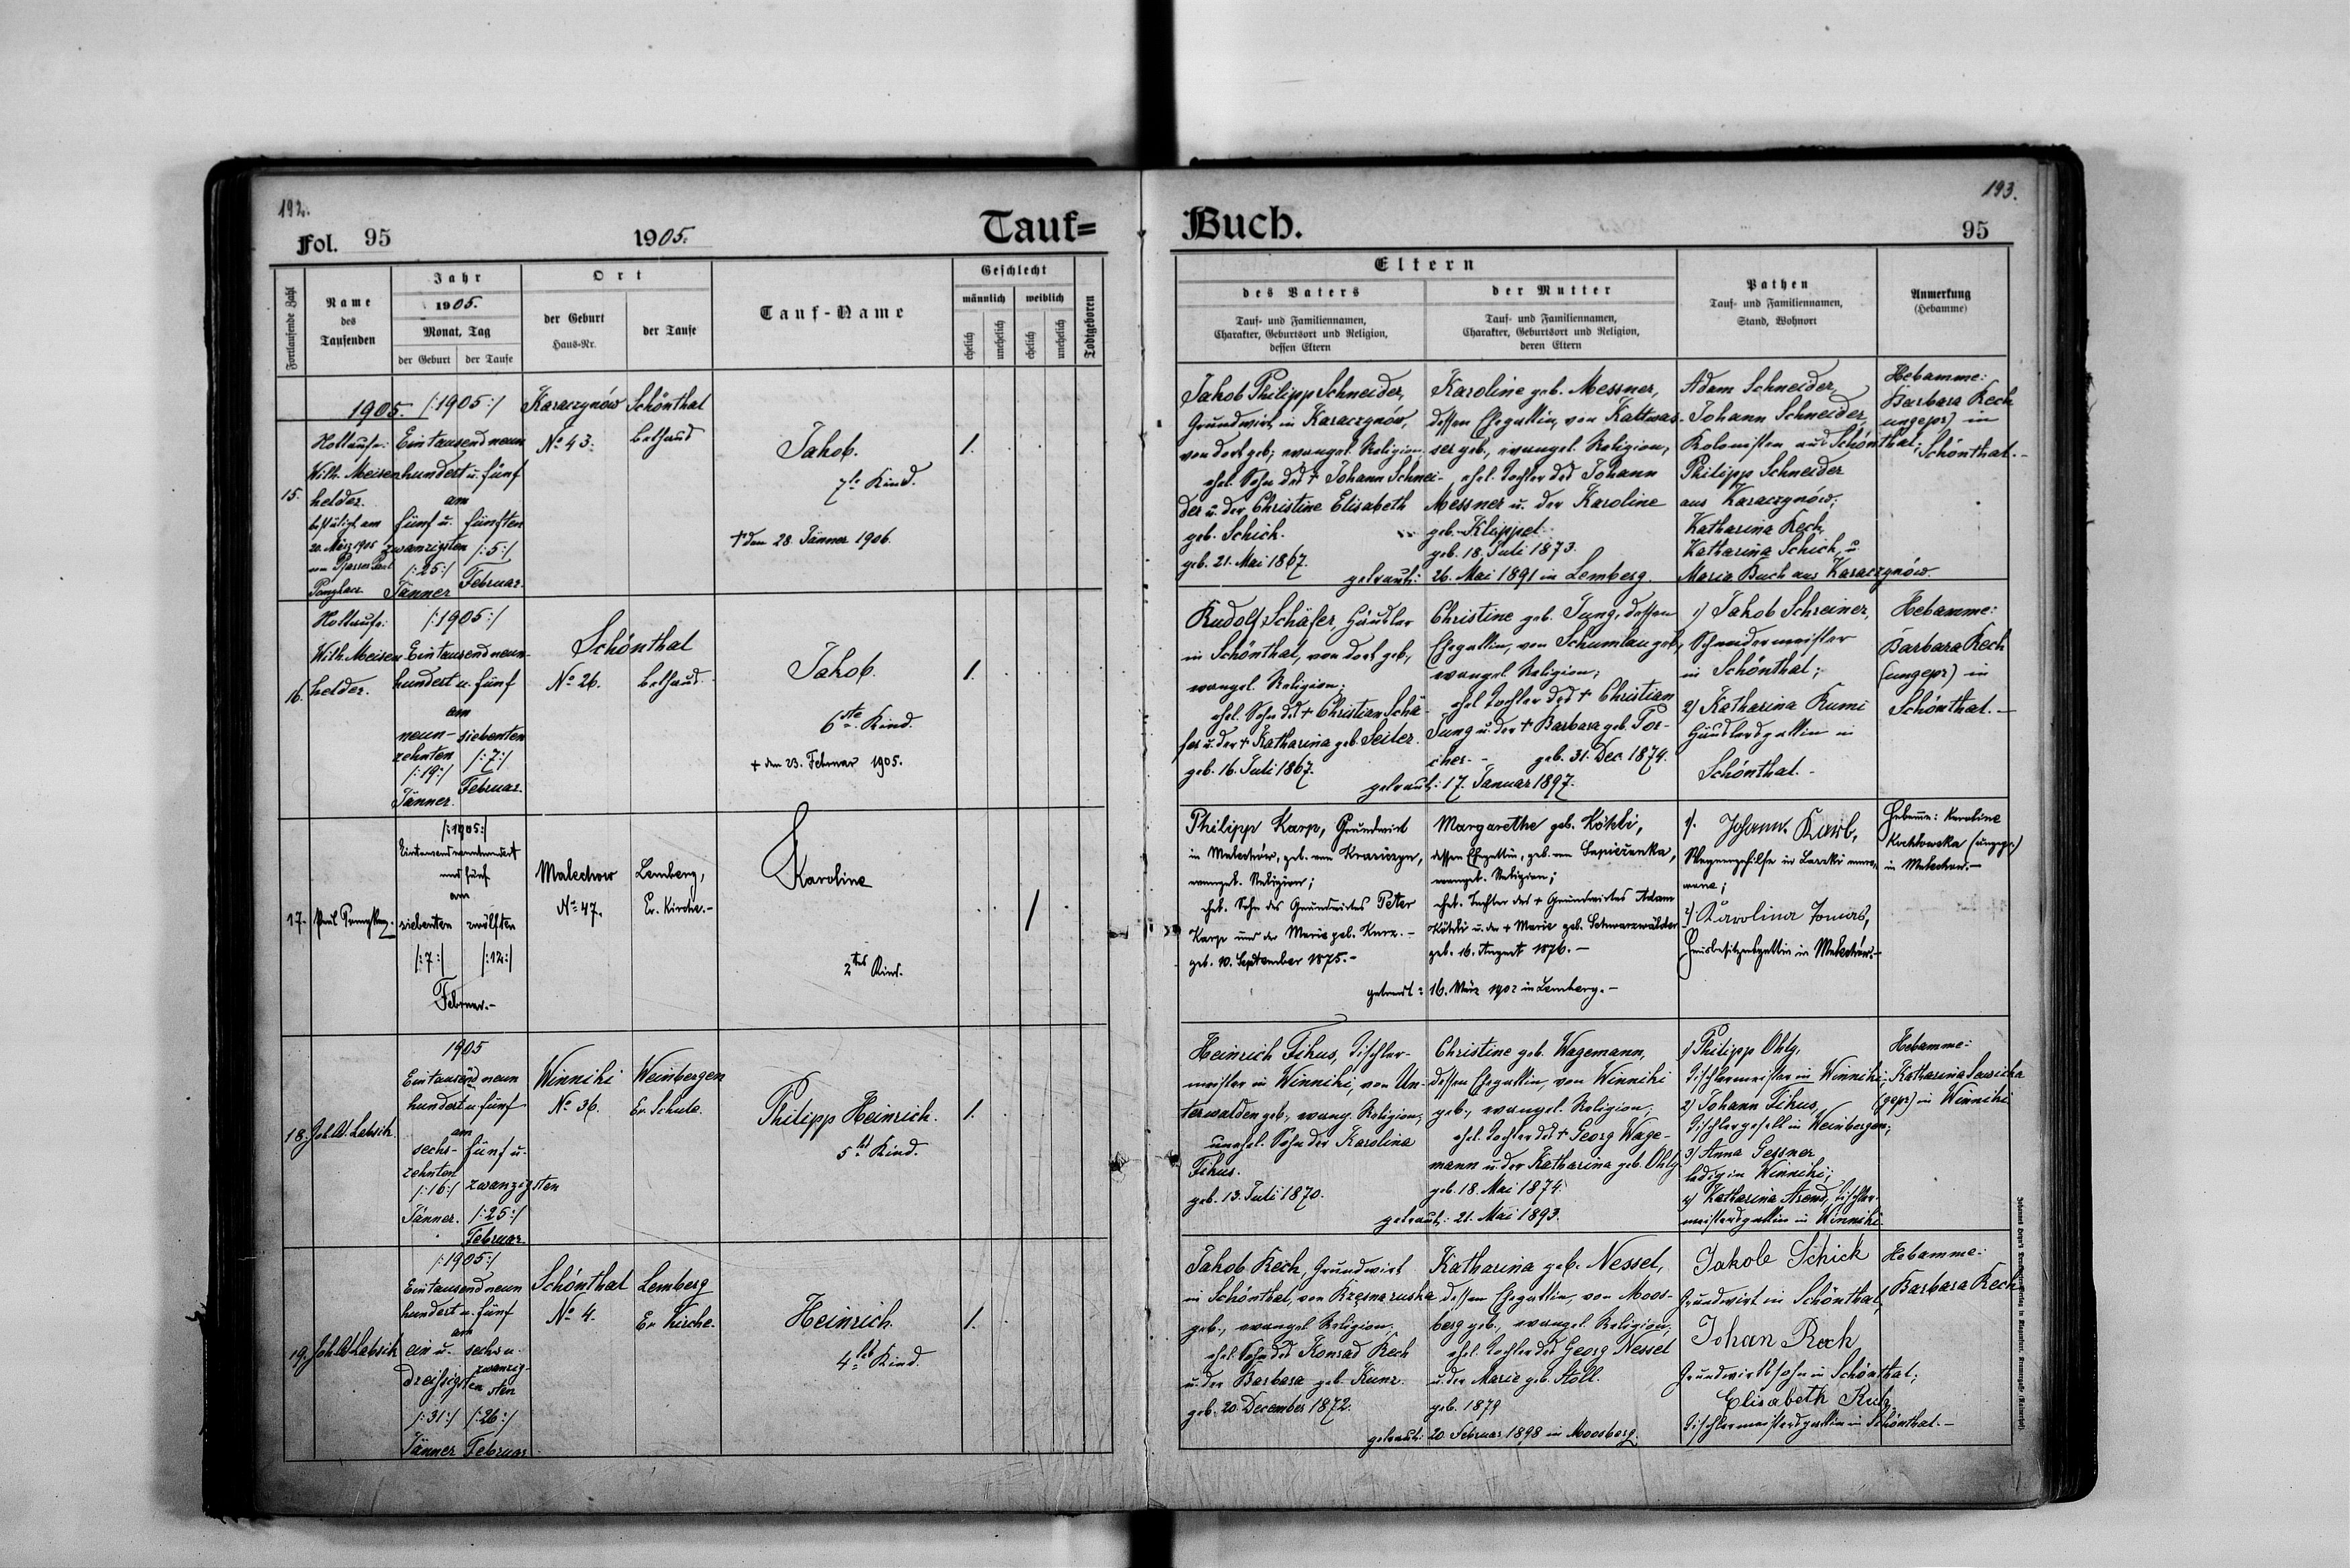 192.
Fol. 95
1905.
Tauf=
Fortlaufende Zahl
Name
des
Taufenden
Jahr
1905.
Monat, Tag
der Geburt
der Taufe
Ort
der Geburt
Haus-Nr.
der Taufe
Tauf-Name
Geschlecht
männlich
weiblich
ehelich
unehelich
ehelich
unehelich
Todtgeboren
15.
1905.
Nottaufe:
Wilh. Meisen
helder.
bestätigt am
20. März 1905
von Pfarrer Paul
/:1905:/
Eintausendneun
hundert u. fünf
am
fünf u.
zwanzigsten
/:25:/
Jänner
fünften
/:5:/
Februar.
Karaczynów
No 43.
Schönthal
Bethaus
Jakob.
7te Kind.
† den 28. Jänner 1906.
1.
16.
Nottaufe:
Wilh. Meisen
helder.
/:1905:/
Eintausendneun-
hundert u. fünf
am
neun-
zehnten
/:19:/
Jänner.
siebenten
/:7:/
Februar.
Schönthal
No 26.
Bethaus.
Jakob.
6ste Kind
+ den 23. Februar 1905.
1.
17.
/:1905:/
Eintausendneunhundert
und fünf
am
siebenten
/:7:/
zwölften
/:12:/
Februar.-
Malechow
No 47.
Lemberg,
Ev. Kirche.-
Karoline
2tes Kind.
1
18.
Joh. W. Labsik.
1905
Eintausend neun
hundert u. fünf
am
sechs-
zehnten
/:16:/
Jänner.
fünf u.
zwanzigsten
/:25:/
Februar.
Winniki
No 36.
Weinbergen
Ev. Schule.
Philipp Heinrich.
5tes Kind.
1.
19.
Joh. W. Labsik
/:1905:/
Eintausend neun
hundert u. fünf
am
ein u.
dreißigsten
/:31:/
Jänner
sechs u.
zwanzig-
sten
/:26:/
Februar.
Schönthal
No 4.
Lemberg
Ev. Kirche.
Heinrich.
4tes Kind.
1.
193.
Buch.
95
Eltern
des Vaters
Tauf- und Familiennamen,
Charakter, Geburtsort und Religion,
dessen Eltern
der Mutter
Tauf- und Familiennamen,
Charakter, Geburtsort und Religion,
deren Eltern
Pathen
Tauf- und Familiennamen,
Stand, Wohnort
Anmerkung
(Hebamme)
Jakob Philipp Schneider,
Grundwirt in Karaczynów,
von dort geb; evangel. Religion,
ehel. Sohn des † Johann Schnei-
der u. der Christine Elisabeth
geb. Schick.
geb. 21. Mai 1867.
Karoline geb. Messner,
dessen Ehegattin, von Kaltwas-
ser geb., evangel. Religion,
ehel. Tochter des Johann
Messner u. der Karoline
geb. Klippel.
geb. 18. Juli 1873.
getraut: 26. Mai 1891 in Lemberg.
Adam Schneider,
Johann Schneider,
Kolonisten aus Schönthal;
Philipp Schneider
aus Karaczynów;
Katharina Kech,
Katharina Schick, u.
Maria Buch aus Karaczynów.
Hebamme:
Barbara Kech
(ungepr) in
Schönthal.-
Rudolf Schäfer, Häusler
in Schönthal, von dort geb,
evangel. Religion;
ehel. Sohn des † Christian Schä-
fer u. der † Katharina geb. Seiler.
geb. 16. Juli 1867.
Christine geb. Jung, dessen
Ehegattin, von Schumlau geb,
evangel Religion;
ehel Tochter des † Christian
Jung u. der † Barbara geb. Por-
cher. - geb. 31. Dec. 1874.
getraut: 17. Januar 1897.
1) Jakob Schreiner,
Schneidermeister
in Schönthal;
2) Katharina Kumi
Häuslersgattin in
Schönthal.-
Hebamme:
Barbara Kech
(ungepr) in
Schönthal.-
Philipp Karp, Grundwirt
in Malechów, geb. von
evangel. Religion;
ehel. Sohn des Grundwirtes Peter
Karp und der Marie geb. Kurz.-
geb. 10. September 1875.-
Margarethe geb. Köhli,
dessen Ehegattin, geb. von Sapiezanka,
evangel. Religion;
ehel. Tochter des + Grundwirtes Adam
Köhli u. der + Marie geb. Schwarzwälder
geb. 16. August 1876.-
getraut: 16. März 1902 in Lemberg.-
1). Johann Karb,
2) Karolina Tomas,
Hausbesitzersgattin in Malechów.-
Hebamme: Karoline
in Malechow.-
Heinrich Fikus, Tischler-
meister in Winniki, von Un-
terwalden geb, evang. Religion;
unehel. Sohn der Karolina
Fikus.
geb. 13. Juli 1870.
Christine geb. Wagemann,
dessen Ehegattin, von Winniki
geb., evangel. Religion;
ehel. Tochter des † Georg Wage-
mann u. der Katharina geb. Ohlg
geb. 18. Mai 1874.
getraut: 21. Mai 1893.
1) Philipp Ohlg,
Tischlermeister in Winniki;
2) Johann Fikus,
Tischlergesell in Weinbergen;
3) Anna Gessner
ledig in Winniki;
4) Katharina Arend, Tischler-
meistersgattin in Winniki
Hebamme:
Katharina Sawicka
(gepr) in Winniki
Jakob Kech, Grundwirt
in Schönthal, von Krzesnaruska
geb., evangel Religion,
ehel. Sohn des Konrad Kech
u. der Barbara geb. Kunz.
geb. 20. December 1872.
Katharina geb. Nessel,
dessen Ehegattin, von Moos-
berg geb., evangel. Religion,
ehel. Tochter des Georg Nessel
u. der Marie geb. Stoll.
geb. 1879
getraut: 20. Februar 1898 in Moosberg.
Jakob Schick
Grundwirt in Schönthal,
Johan Reck
Grundwirtssohn in Schönthal;
Elisabeth
Tischlermeistersgattin in Schönthal.-
Hebamme:
Barbara Kech